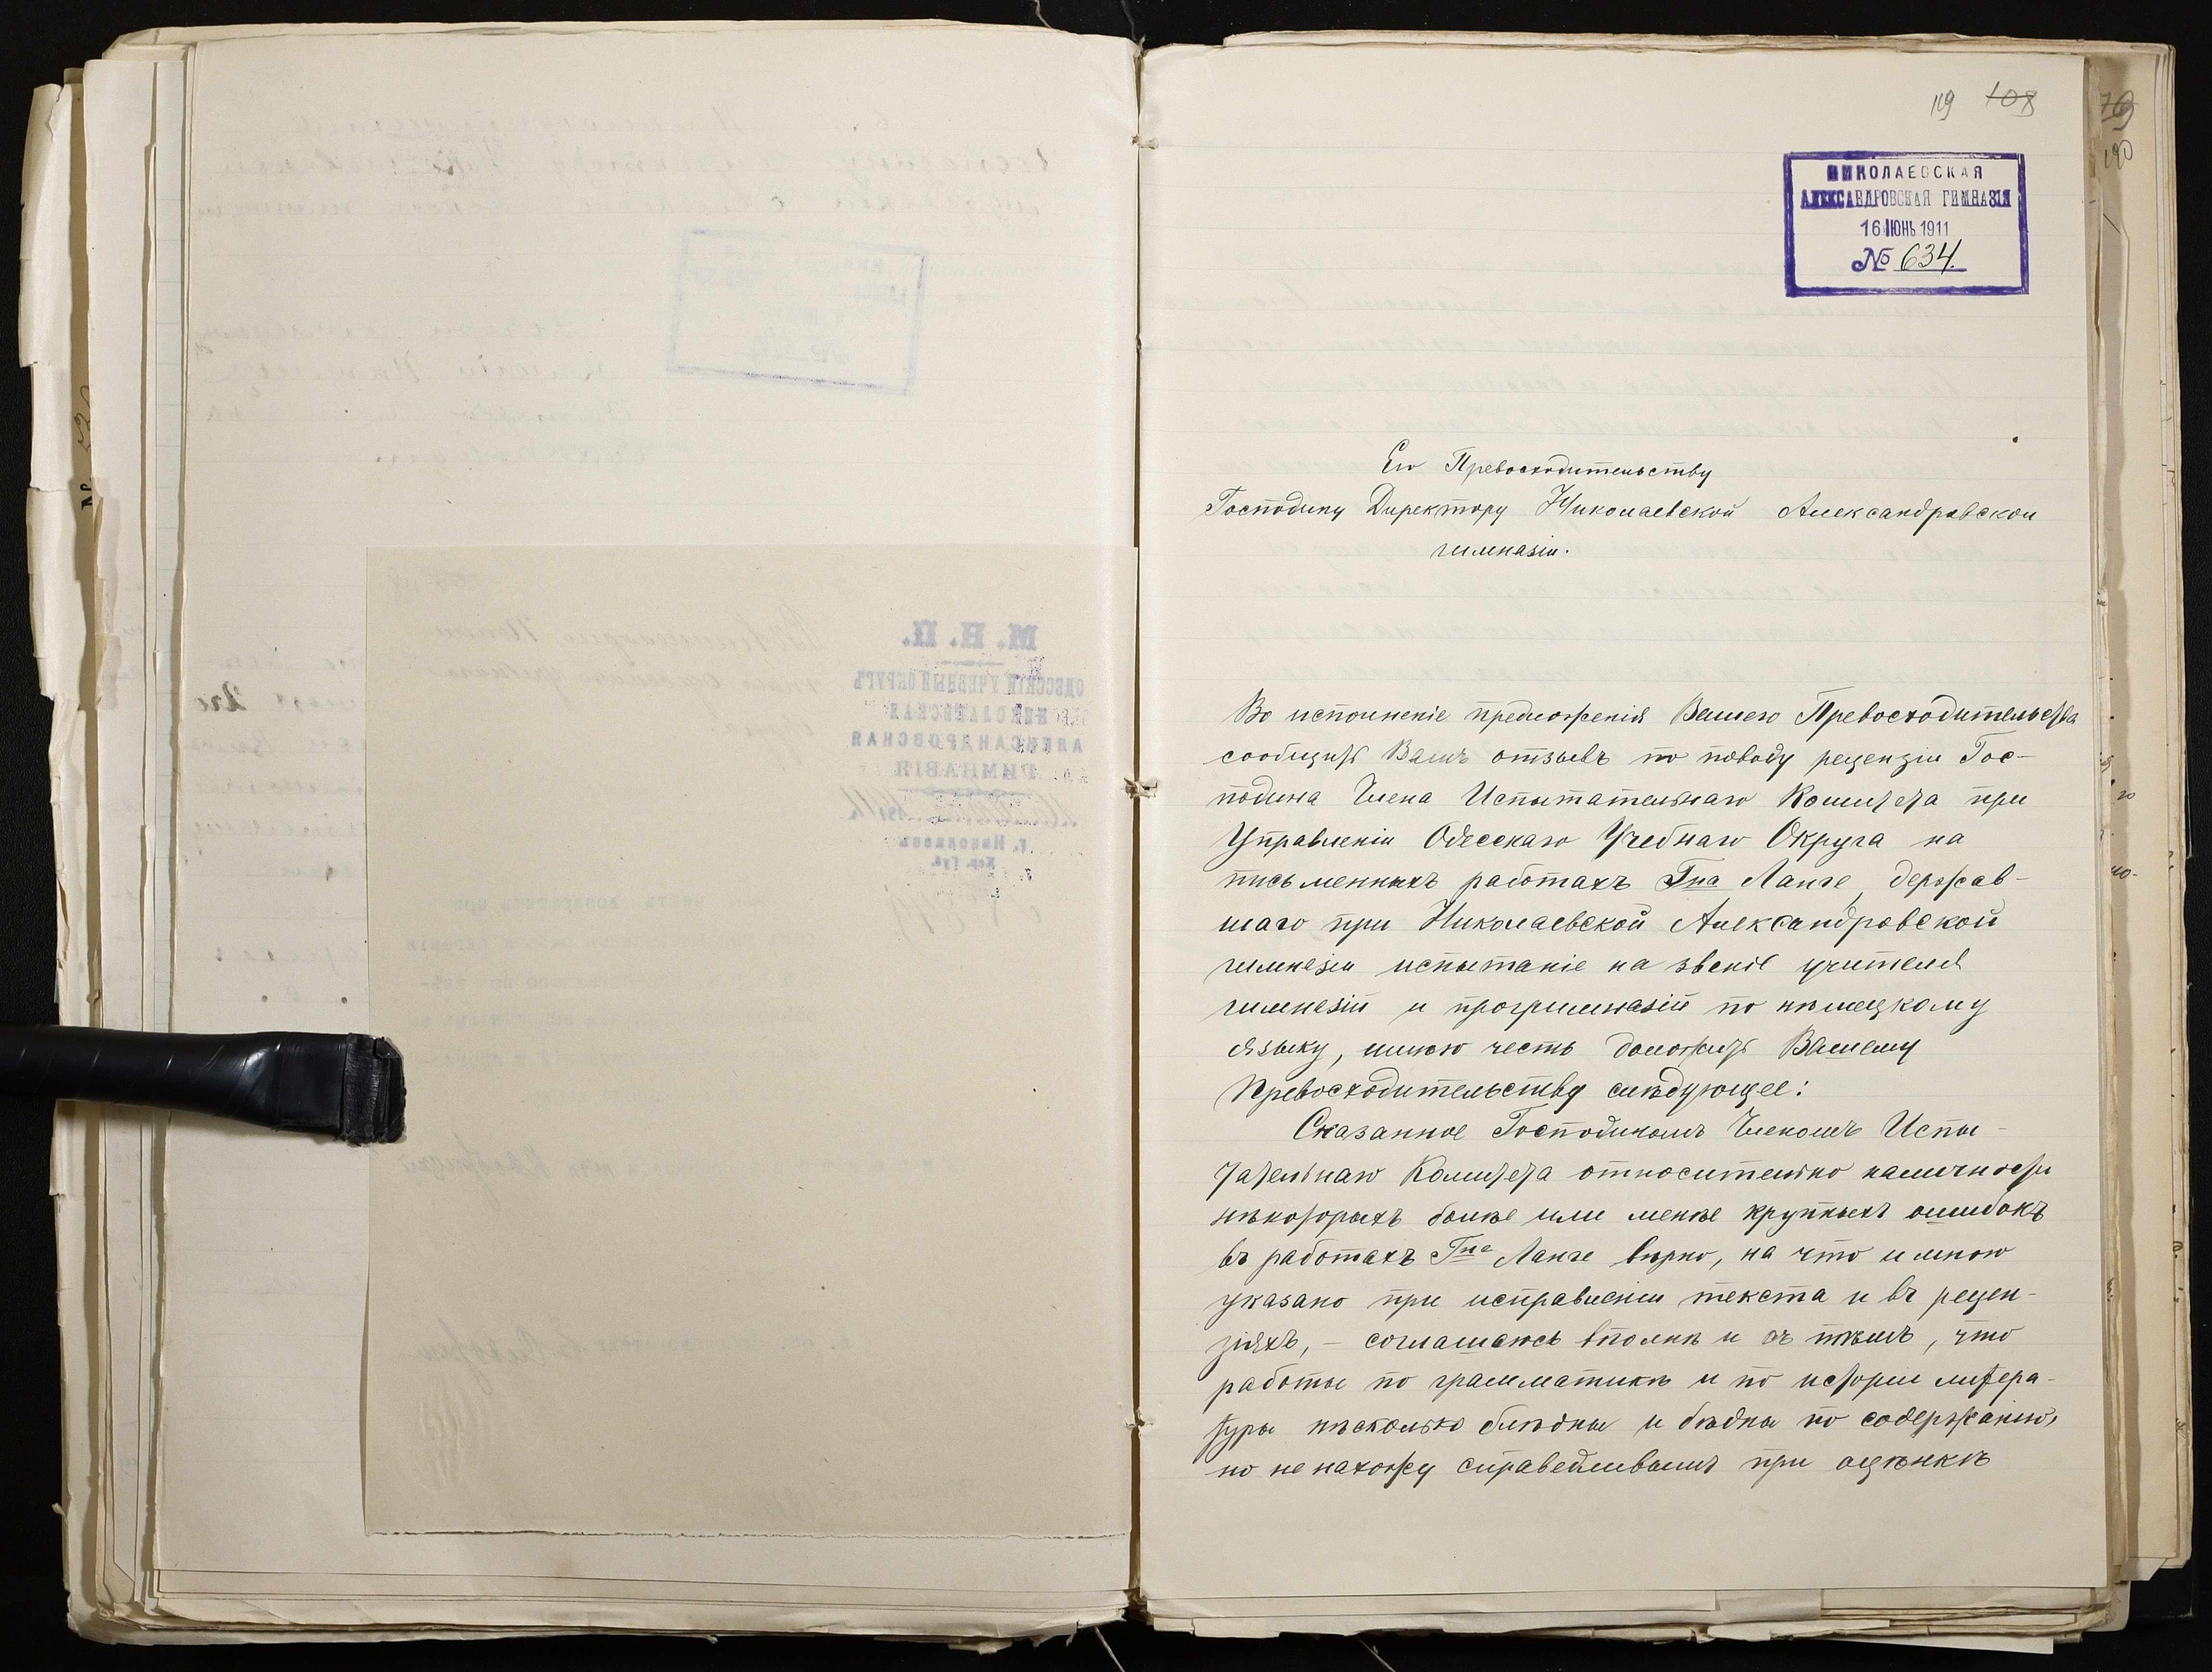 119 108
НИКОЛАЕВСКАЯ
АЛЕКСАНДРОВСКАЯ ГИМНАЗІЯ
16 ІЮНЬ 1911
№ 634.
Его Превосходительству
Господину Директору Николаевской Александровской
гимназіи.
Во исполненіе предложенія Вашего Превосходительства
сообщить Вамъ отзывъ по поводу рецензіи Гос-
подина Члена Испытательнаго Комитета при
Управленіи Одесскаго Учебнаго Округа на
письменныхъ работахъ Гна Ланге, держав-
шаго при Николаевской Александровской
гимназіи испытаніе на званіе учителя
гимназій и прогимназій по нѣмецкому
языку, имѣю честь доложить Вашему
Превосходительству слѣдующее:
Сказанное Господиномъ Членомъ Испы-
тательнаго Комитета относительно наличности
нѣкоторыхъ болѣе или менѣе крупныхъ ошибокъ
въ работахъ Гна Ланге вѣрно, на что и мною
указано при исправленіи текста и въ рецен-
зіяхъ, - соглашаюсь вполнѣ и съ тѣмъ, что
работы по грамматикѣ и по исторіи литера-
туры нѣсколько блѣдны и бѣдны по содержанію,
но не нахожу справедливымъ при оцѣнкѣ
М. Н. П.
ОДЕССКІЙ УЧЕБНЫЙ ОКРУГЪ
НИКОЛАЕВСКАЯ
АЛЕКСАНДРОВСКАЯ
ГИМНАЗІЯ
г. Николаевъ
Хер. Губ.